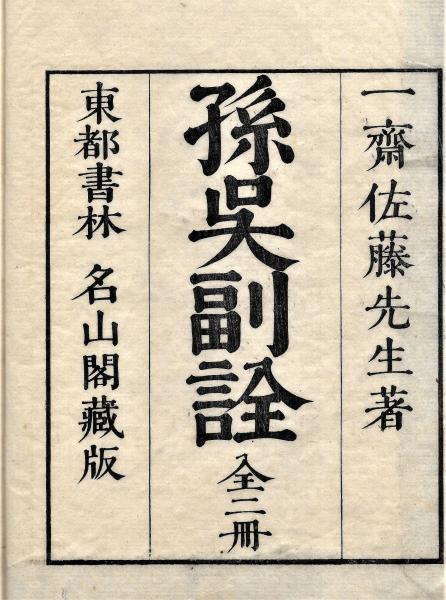 一齋佐藤先生著
孫吳副詮 全二冊
東都書林 名山閣藏版